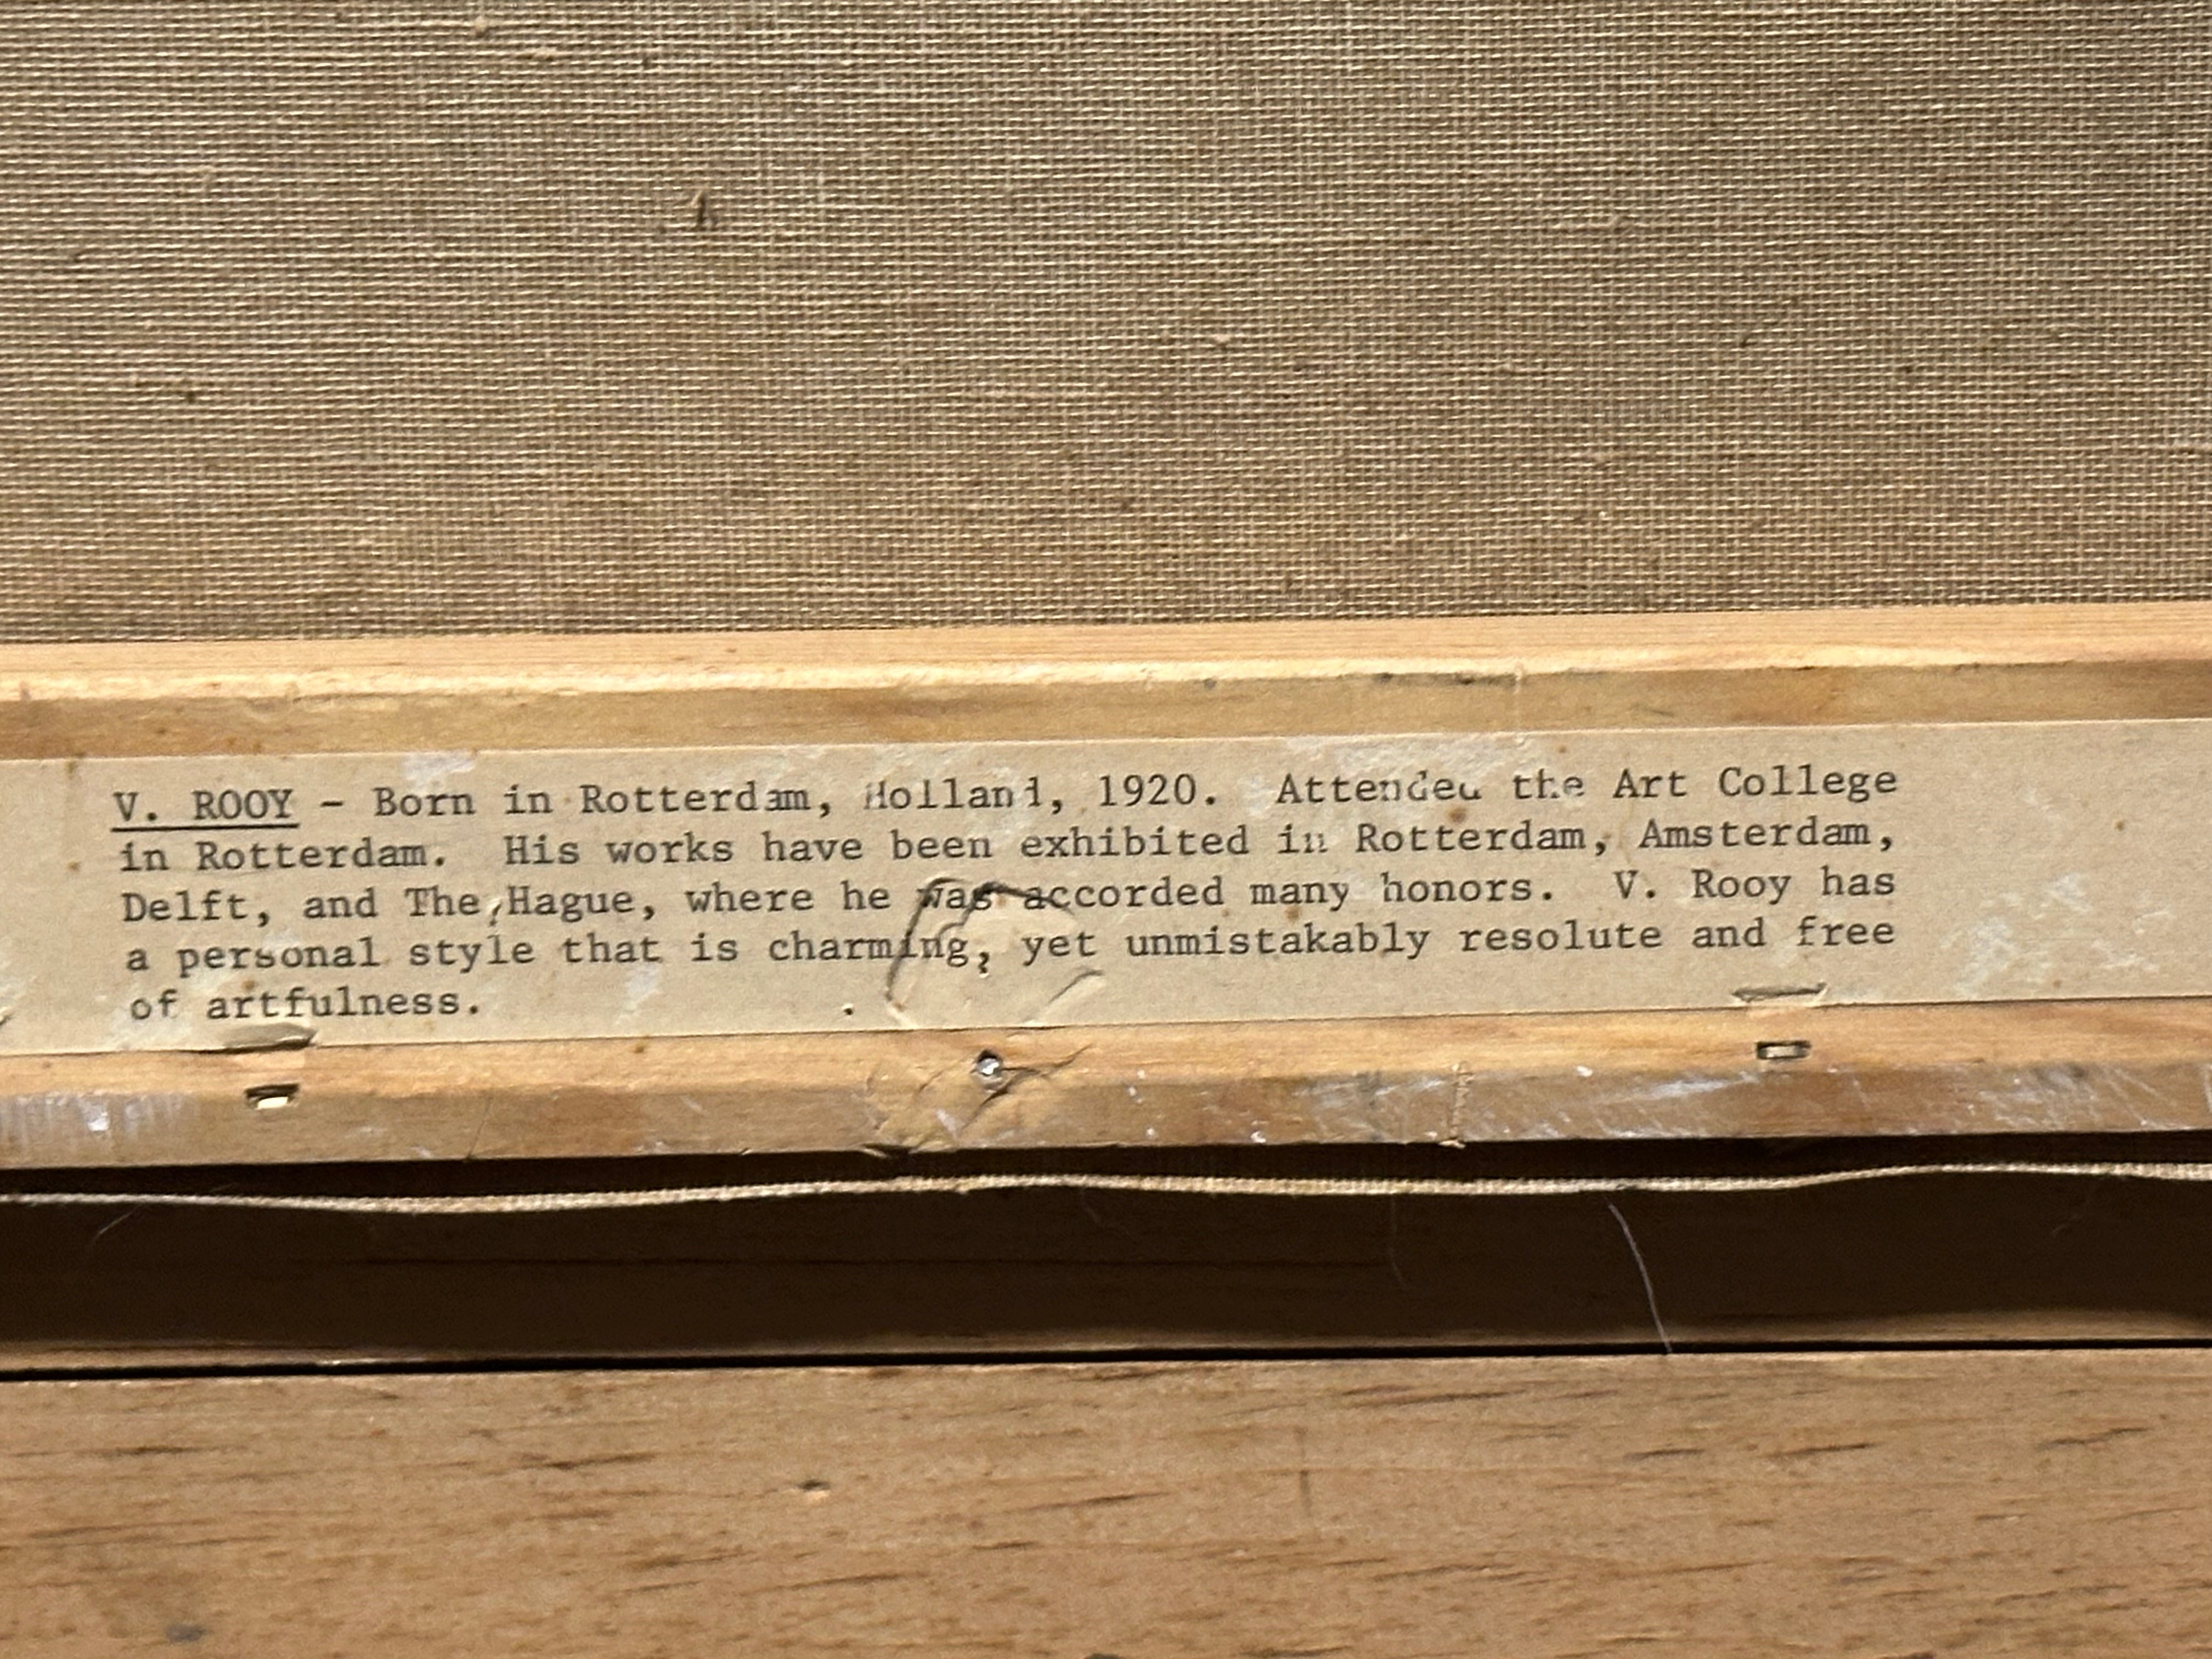 V. ROOY - Born in Rotterdam, Holland, 1920.  Attended the Art College
in Rotterdam.  His works have been exhibited in Rotterdam, Amsterdam,
Delft, and The Hague, where he was accorded many honors.  V. Rooy has
a personal style that is charming, yet unmistakably resolute and free
of artfulness.